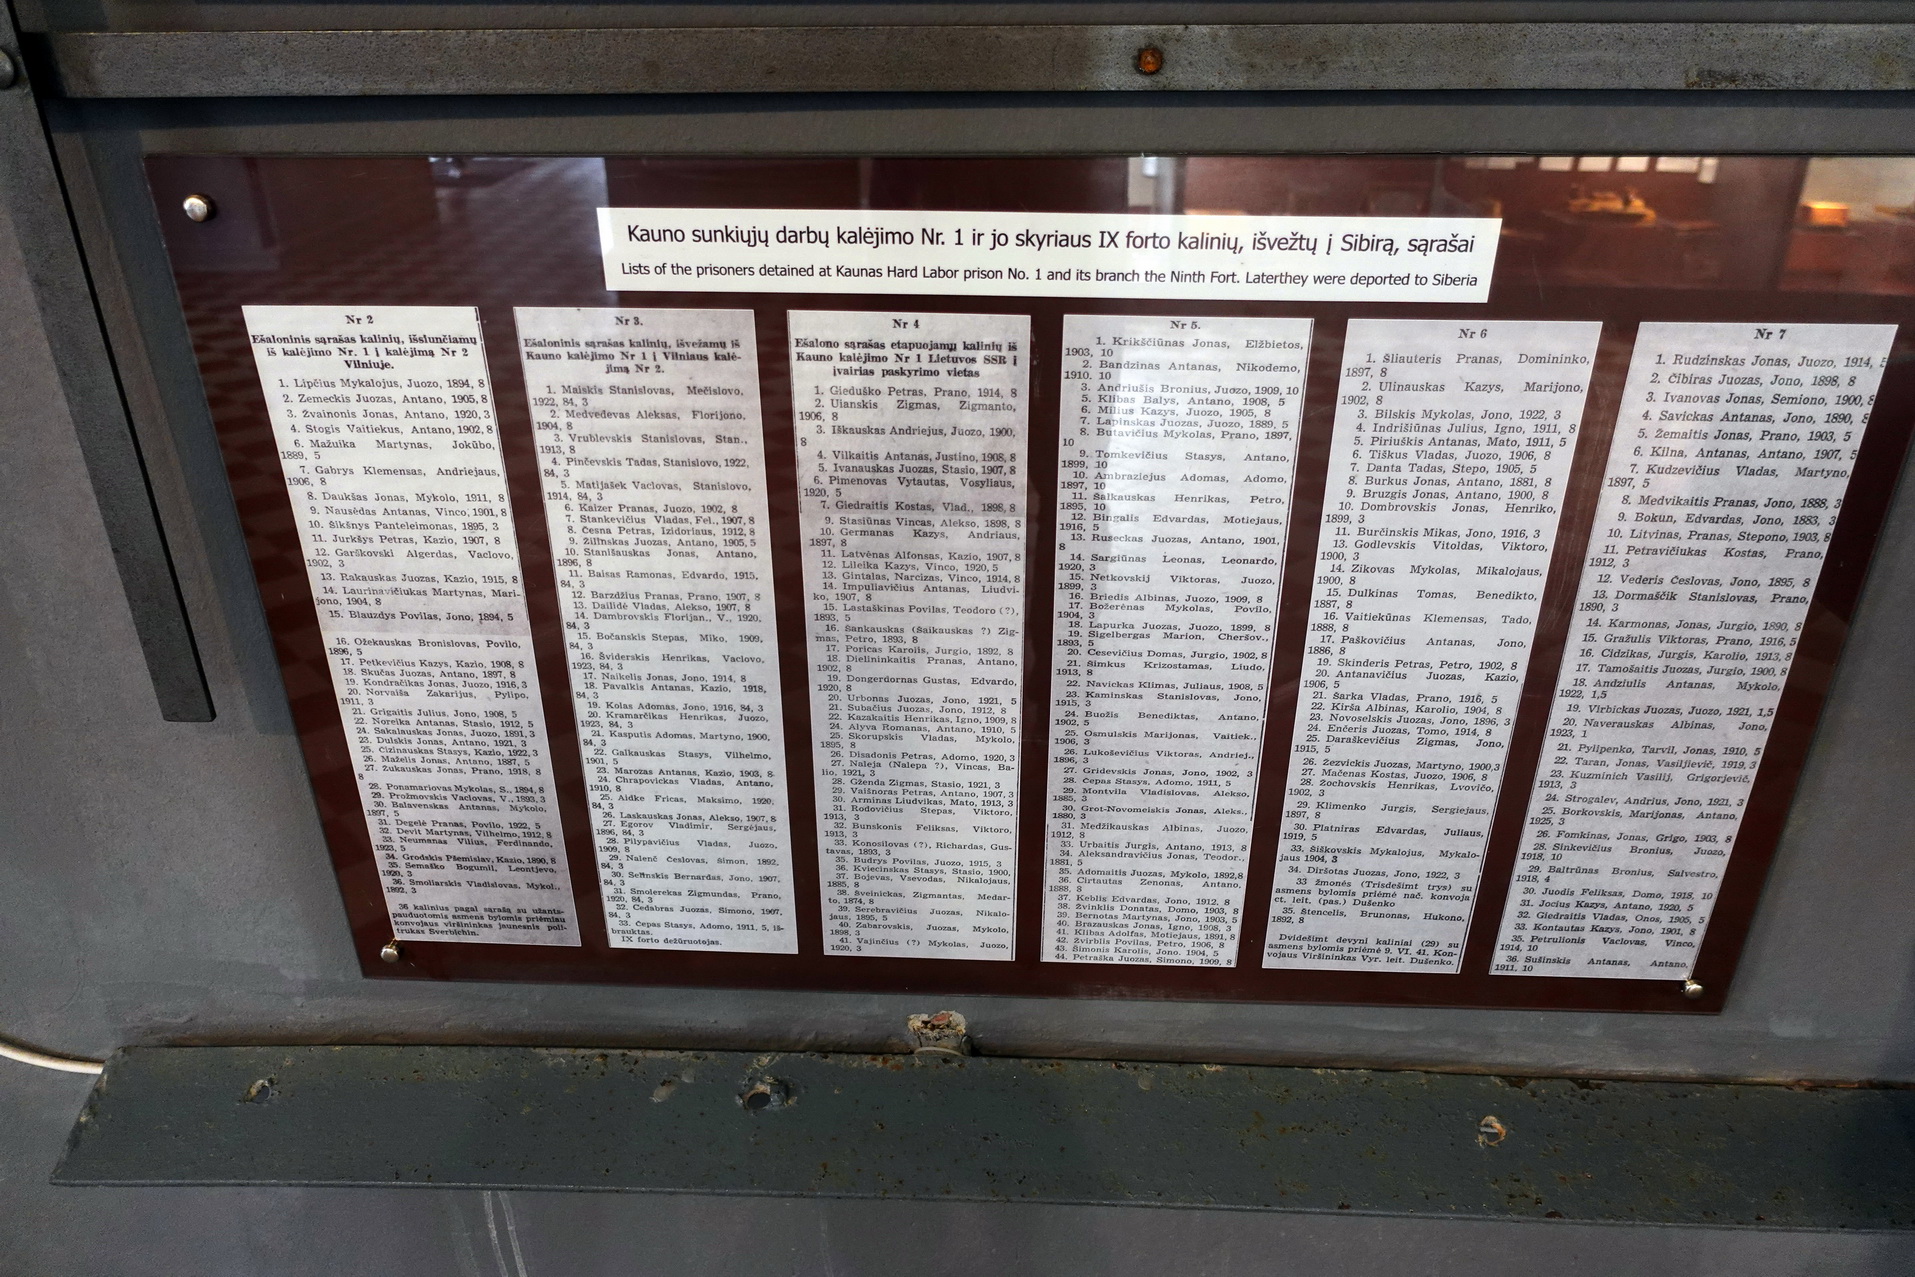 Kauno sunkiųjų darbų kalėjimo Nr. 1 ir jo skyriaus IX forto kalinių, išvežtų į Sibirą, sąrašai
Lists of the prisoners detained at Kaunas Hard Labor prison No. 1 and its branch the Ninth Fort. Laterthey were deported to Siberia
Nr 2
Ešaloninis sąrašas kalinių, išsiunčiamų
iš kalėjimo Nr. 1 į kalėjimą Nr 2
Vilniuje.
1. Lipčius Mykalojus, Juozo, 1894, 8
2. Zemeckis Juozas, Antano, 1905, 8
3. Žvainonis Jonas, Antano, 1920, 3
4. Stogis Vaitiekus, Antano, 1902, 8
6. Mažuika Martynas, Jokūbo,
1889, 5
7. Gabrys Klemensas, Andriejaus,
1906, 8
8. Daukšas Jonas, Mykolo, 1911, 8
9. Nausėdas Antanas, Vinco, 1901, 8
10. Šikšnys Panteleimonas, 1895, 3
11. Jurkšys Petras, Kazio, 1907, 8
12. Garškovski Algerdas, Vaclovo,
1902, 3
13. Rakauskas Juozas, Kazio, 1915, 8
14. Laurinavičiukas Martynas, Mari-
jono, 1904, 8
15. Blauzdys Povilas, Jono, 1894, 5
16. Ožekauskas Bronislovas, Povilo,
1896, 5
17. Petkevičius Kazys, Kazio, 1908, 8
18. Skučas Jonas, Antano, 1897, 8
19. Kondračikas Jonas, Juozo, 1916, 3
20. Norvaiša Zakarijus, Pylipo,
1911, 3
21. Grigaitis Julius, Jono, 1908, 5
22. Noreika Antanas, Stasio, 1912, 5
24. Sakalauskas Jonas, Juozo, 1891, 3
23. Dulskis Jonas, Antano, 1921, 3
25. Cizinauskas Stasys, Kazio, 1922, 3
26. Maželis Jonas, Antano, 1887, 5
27. Žukauskas Jonas, Prano, 1918, 8
8
28. Ponamariovas Mykolas, S., 1894, 8
29. Prožmovskis Vaclovas, V., 1893, 3
30. Balavenskas Antanas, Mykolo,
1897, 5
31. Degelė Pranas, Povilo, 1922, 5
32. Devit Martynas, Vilhelmo, 1912, 8
33. Neumanas Vilius, Ferdinando,
1923, 5
34. Grodskis Pšemislav, Kazio, 1890, 8
35. Semaško Bogumil, Leontjevo,
1920, 3
36. Smoliarskis Vladislovas, Mykol.,
1892, 3
36 kalinius pagal sąrašą su užanta-
spauduotomis asmens bylomis priėmiau
konvojaus viršininkas jaunesnis poli-
trukas Sverbichin.
Nr 3.
Ešaloninis sąrašas kalinių, išvežamų iš
Kauno kalėjimo Nr 1 į Vilniaus kalė-
jimą Nr 2.
1. Maiskis Stanislovas, Mečislovo,
1922, 84, 3
2. Medvedevas Aleksas, Florijono,
1904, 8
3. Vrublevskis Stanislovas, Stan.,
1913, 8
4. Pinčevskis Tadas, Stanislovo, 1922,
84, 3
5. Matijašek Vaclovas, Stanislovo,
1914, 84, 3
6. Kaizer Pranas, Juozo, 1902, 8
7. Stankevičius Vladas, Fel., 1907, 8
8. Česna Petras, Izidoriaus, 1912, 8
9. Žilinskas Juozas, Antano, 1905, 5
10. Stanišauskas Jonas, Antano,
1896, 8
11. Baisas Ramonas, Edvardo, 1915,
84, 3
12. Barzdžius Pranas, Prano, 1907, 8
13. Dailidė Vladas, Alekso, 1907, 8
14. Dambrovskis Florijan., V., 1920,
84, 3
15. Bočanskis Stepas, Miko, 1909,
84, 3
16. Šviderskis Henrikas, Vaclovo,
1923, 84, 3
17. Naikelis Jonas, Jono, 1914, 8
18. Pavalkis Antanas, Kazio, 1918,
84, 3
19. Kolas Adomas, Jono, 1916, 84, 3
20. Kramarčikas Henrikas, Juozo,
1923, 84, 3
21. Kasputis Adomas, Martyno, 1900,
84, 3
22. Galkauskas Stasys, Vilhelmo,
1901, 5
23. Marozas Antanas, Kazio, 1903, 8
24. Chrapovickas Vladas, Antano,
1910, 8
25. Aidke Fricas, Maksimo, 1920,
84, 3
26. Laskauskas Jonas, Alekso, 1907, 8
27. Egorov Vladimir, Sergėjaus,
1896, 84, 3
28. Pilypavičius Vladas, Juozo,
1909, 8
29. Nalenč Česlovas, Simon, 1892,
84, 3
30. Seinskis Bernardas, Jono, 1907,
84, 3
31. Smolerekas Zigmundas, Prano,
1920, 84, 3
32. Cedabras Juozas, Simono, 1907,
84, 3
33. Čepas Stasys, Adomo, 1911, 5, iš-
brauktas.
IX forto dežūruotojas.
Nr 4
Ešalono sąrašas etapuojamų kalinių iš
Kauno kalėjimo Nr 1 Lietuvos SSR į
įvairias paskyrimo vietas
1. Gieduško Petras, Prano, 1914, 8
2. Uianskis Zigmas, Zigmanto,
1906, 8
3. Iškauskas Andriejus, Juozo, 1900,
8
4. Vilkaitis Antanas, Justino, 1908, 8
5. Ivanauskas Juozas, Stasio, 1907, 8
6. Pimenovas Vytautas, Vosyliaus,
1920, 5
7. Giedraitis Kostas, Vlad., 1898, 8
9. Stasiūnas Vincas, Alekso, 1898, 8
10. Germanas Kazys, Andriaus,
1897, 8
11. Latvėnas Alfonsas, Kazio, 1907, 8
12. Lileika Kazys, Vinco, 1920, 5
13. Gintalas, Narcizas, Vinco, 1914, 8
14. Impuliavičius Antanas, Liudvi-
ko, 1907, 8
15. Lastaškinas Povilas, Teodoro (?),
1893, 5
16. Šankauskas (Šaikauskas ?) Zig-
mas, Petro, 1893, 8
17. Poricas Karolis, Jurgio, 1892, 8
18. Dielininkaitis Pranas, Antano,
1902, 8
19. Dongerdornas Gustas, Edvardo,
1920, 8
20. Urbonas Juozas, Jono, 1921, 5
21. Subačius Jonas, Jono, 1912, 8
22. Kazakaitis Henrikas, Igno, 1909, 8
24. Alyva Romanas, Antano, 1910, 5
25. Skorupskis Vladas, Mykolo,
1895, 8
26. Disadonis Petras, Adomo, 1920, 3
27. Naleja (Nalepa ?), Vincas, Ba-
lio, 1921, 3
28. Gženda Zigmas, Stasio, 1921, 3
29. Vaišnoras Petras, Antano, 1907, 3
30. Arminas Liudvikas, Mato, 1913, 3
31. Rodovičius Stepas, Viktoro,
1913, 3
32. Bunskonis Feliksas, Viktoro,
1913, 3
33. Konosilovas (?), Richardas, Gus-
tavas, 1893, 3
35. Budrys Povilas, Juozo, 1915, 3
36. Kviecinskas Stasys, Stasio, 1900,
37. Bojevas, Vsevodas, Nikalojaus,
1885, 8
38. Sveinickas, Zigmantas, Medar-
to, 1874, 8
39. Serebravičius Juozas, Nikalo-
jaus, 1895, 5
40. Zabarovskis, Juozas, Mykolo,
1898, 3
41. Vajinčius (?) Mykolas, Juozo,
1920, 3
Nr 5.
1. Krikščiūnas Jonas, Elžbietos,
1903, 10
2. Bandzinas Antanas, Nikodemo,
1910, 10
3. Andriušis Bronius, Juozo, 1909, 10
5. Klibas Balys, Antano, 1908, 5
6. Milius Kazys, Juozo, 1905, 8
7. Lapinskas Juozas, Juozo, 1889, 5
8. Butavičius Mykolas, Prano, 1897,
10
9. Tomkevičius Stasys, Antano,
1899, 10
10. Ambraziejus Adomas, Adomo,
1897, 10
11. Šalkauskas Henrikas, Petro,
1895, 10
12. Bingalis Edvardas, Motiejaus,
1916, 5
13. Ruseckas Juozas, Antano, 1901,
8
14. Sargiūnas Leonas, Leonardo,
1920, 3
15. Netkovskij Viktoras, Juozo,
1899, 3
16. Briedis Albinas, Juozo, 1909, 8
17. Božerėnas Mykolas, Povilo,
1904, 3
18. Lapurka Juozas, Juozo, 1899, 8
19. Sigelbergas Marion, Cheršov.,
1893, 5
20. Cesevičius Domas, Jurgio, 1902, 8
21. Simkus Krizostamas, Liudo,
1913, 8
22. Navickas Klimas, Juliaus, 1908, 5
23. Kaminskas Stanislovas, Jono,
1915, 3
24. Buožis Benediktas, Antano,
1902, 5
25. Osmulskis Marijonas, Vaitiek.,
1906, 3
26. Lukoševičius Viktoras, Andriej.,
1896, 3
27. Gridevskis Jonas, Jono, 1902, 3
28. Čepas Stasys, Adomo, 1911, 5
29. Montvila Vladislovas, Alekso,
1885, 3
30. Grot-Novomeiskis Jonas, Aleks.,
1880, 3
31. Medžikauskas Albinas, Juozo,
1912, 8
33. Urbaitis Jurgis, Antano, 1913, 8
34. Aleksandravičius Jonas, Teodor.,
1881, 5
35. Adomaitis Juozas, Mykolo, 1892,8
36. Cirtautas Zenonas, Antano,
1888, 8
37. Keblis Edvardas, Jono, 1912, 8
38. Žvinklis Donatas, Domo, 1903, 8
39. Bernotas Martynas, Jono, 1903, 5
40. Brazauskas Jonas, Igno, 1908, 3
41. Klibas Adolfas, Motiejaus, 1891, 8
42. Žvirblis Povilas, Petro, 1906, 8
43. Šimonis Karolis, Jono, 1904, 5
44. Petraška Juozas, Simono, 1909, 8
Nr 6
1. Šliauteris Pranas, Domininko,
1897, 8
2. Ulinauskas Kazys, Marijono,
1902, 8
3. Bilskis Mykolas, Jono, 1922, 3
4. Indrišiūnas Julius, Igno, 1911, 8
5. Piriuškis Antanas, Mato, 1911, 5
6. Tiškus Vladas, Juozo, 1906, 8
7. Danta Tadas, Stepo, 1905, 5
8. Burkus Jonas, Antano, 1881, 8
9. Bruzgis Jonas, Antano, 1900, 8
10. Dombrovskis Jonas, Henriko,
1899, 3
11. Burčinskis Mikas, Jono, 1916, 3
13. Godlevskis Vitoldas, Viktoro,
1900, 3
14. Zikovas Mykolas, Mikalojaus,
1900, 8
15. Dulkinas Tomas, Benedikto,
1887, 8
16. Vaitiekūnas Klemensas, Tado,
1888, 8
17. Paškovičius Antanas, Jono,
1886, 8
19. Skinderis Petras, Petro, 1902, 8
20. Antanavičius Juozas, Kazio,
1906, 5
21. Šarka Vladas, Prano, 1916, 5
22. Kirša Albinas, Karolio, 1904, 8
23. Novoselskis Juozas, Jono, 1896, 3
24. Enčeris Juozas, Tomo, 1914, 8
25. Daraškevičius Zigmas, Jono,
1915, 5
26. Zezvickis Juozas, Martyno, 1900,3
27. Mačenas Kostas, Juozo, 1906, 8
28. Zochovskis Henrikas, Lvovičo,
1902, 3
29. Klimenko Jurgis, Sergiejaus,
1897, 8
30. Platniras Edvardas, Juliaus,
1919, 5
33. Šiškovskis Mykalojus, Mykalo-
jaus 1904, 3
34. Diršotas Juozas, Jono, 1922, 3
33 žmonės (Trisdešimt trys) su
asmens bylomis priėmė nač. konvoja
ct. leit. (pas.) Dušenko
35. Štencelis, Brunonas, Hukono,
1892, 8
Dvidešimt devyni kaliniai (29) su
asmens bylomis priėmė 9. VI. 41. Kon-
vojaus Viršininkas Vyr. leit. Dušenko.
Nr 7
1. Rudzinskas Jonas, Juozo, 1914,
2. Čibiras Juozas, Jono, 1898, 8
3. Ivanovas Jonas, Semiono, 1900, 8
4. Savickas Antanas, Jono, 1890, 8
5. Žemaitis Jonas, Prano, 1903, 5
6. Kilna, Antanas, Antano, 1907, 5
7. Kudzevičius Vladas, Martyno,
1897, 5
8. Medvikaitis Pranas, Jono, 1888, 3
9. Bokun, Edvardas, Jono, 1883, 3
10. Litvinas, Pranas, Stepono, 1903, 8
11. Petravičiukas Kostas, Prano,
1912, 3
12. Vederis Česlovas, Jono, 1895, 8
13. Dormaščik Stanislovas, Prano,
1890, 3
14. Karmonas, Jonas, Jurgio, 1890, 8
15. Gražulis Viktoras, Prano, 1916, 5
16. Cidzikas, Jurgis, Karolio, 1913, 8
17. Tamošaitis Juozas, Jurgio, 1900, 8
18. Andziulis Antanas, Mykolo,
1922, 1,5
19. Virbickas Juozas, Juozo, 1921, 1,5
20. Naverauskas Albinas, Jono,
1923, 1
21. Pylipenko, Tarvil, Jonas, 1910, 5
22. Taran, Jonas, Vasiljievič, 1919, 3
23. Kuzminich Vasilij, Grigorjevič,
1913, 3
24. Strogalev, Andrius, Jono, 1921, 3
25. Borkovskis, Marijonas, Antano,
1925, 3
26. Fomkinas, Jonas, Grigo, 1903, 8
28. Sinkevičius Bronius, Juozo,
1918, 10
29. Baltrūnas Bronius, Salvestro,
1918, 4
30. Juodis Feliksas, Domo, 1918, 10
31. Jocius Kazys, Antano, 1920, 5
32. Giedraitis Vladas, Onos, 1905, 5
33. Kontautas Kazys, Jono, 1901, 8
35. Petrulionis Vaclovas, Vinco,
1914, 10
36. Sušinskis Antanas, Antano,
1911, 10